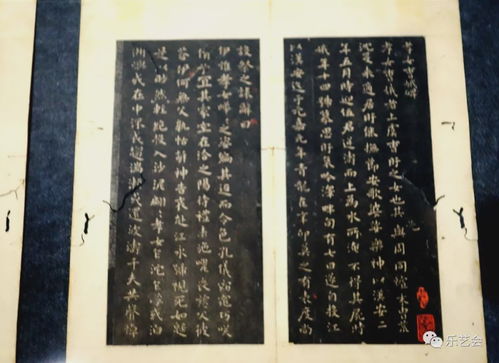 孝女曹娥碑
孝女曹娥者上虞曹盱之女也其先與周同祖末胄荒
沈爰來適居盱能撫節安歌婆娑樂神以漢安二
年五月時迎伍君逆濤而上為水所淹不得其屍時
娥年十四號慕思盱哀吟澤畔旬有七日遂自投江
以漢安迄于元嘉元年青龍在辛卯莫之有表度尚
設祭之誄辭曰
伊惟孝女曄曄之姿偏其返而令色孔儀窈窕巧笑
倩兮宜其家室在洽之陽待禮未施嗟喪慈父彼
蒼伊何無父孰怙訴神告哀赴江永號視死如歸
是以眇然輕絕投入沙泥翩翩孝女乍沈乍浮或泊
洲嶼或在中流或趨湍瀨或還波濤千夫失聲悼
乐艺会